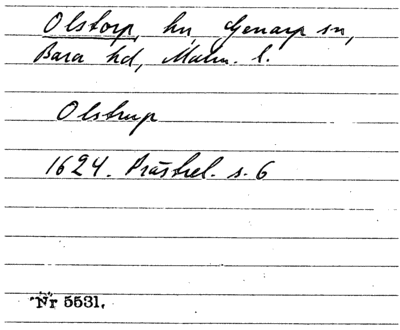 Olstorp, hn, Genarp sn,
Bara hd, Malm. l.
Olstrup
1624. Prästrel. s. 6
Nr 5531.